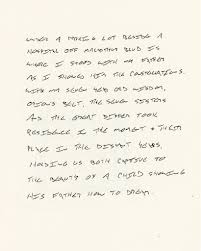 WHEN A PARKING LOT BEHIND A
HOSPITAL OFF MCLAUTHIN BLVD IS
WHERE I STOOD WITH MY FATHER
AS I SHOWED HIM THE CONSTELLATIONS.
WITH MY SEVEN YEAR OLD WISDOM,
ORIONS BELT, THE SEVEN SISTERS
AS THE GREAT DIPPER TOOK
RESIDENCE IN THE MOMENT & THEIR
PLACE IN THE DISTANT YEARS,
HOLDING US BOTH CAPTIVE TO
THE BEAUTY OF A CHILD SHOWING
HIS FATHER HOW TO DREAM.